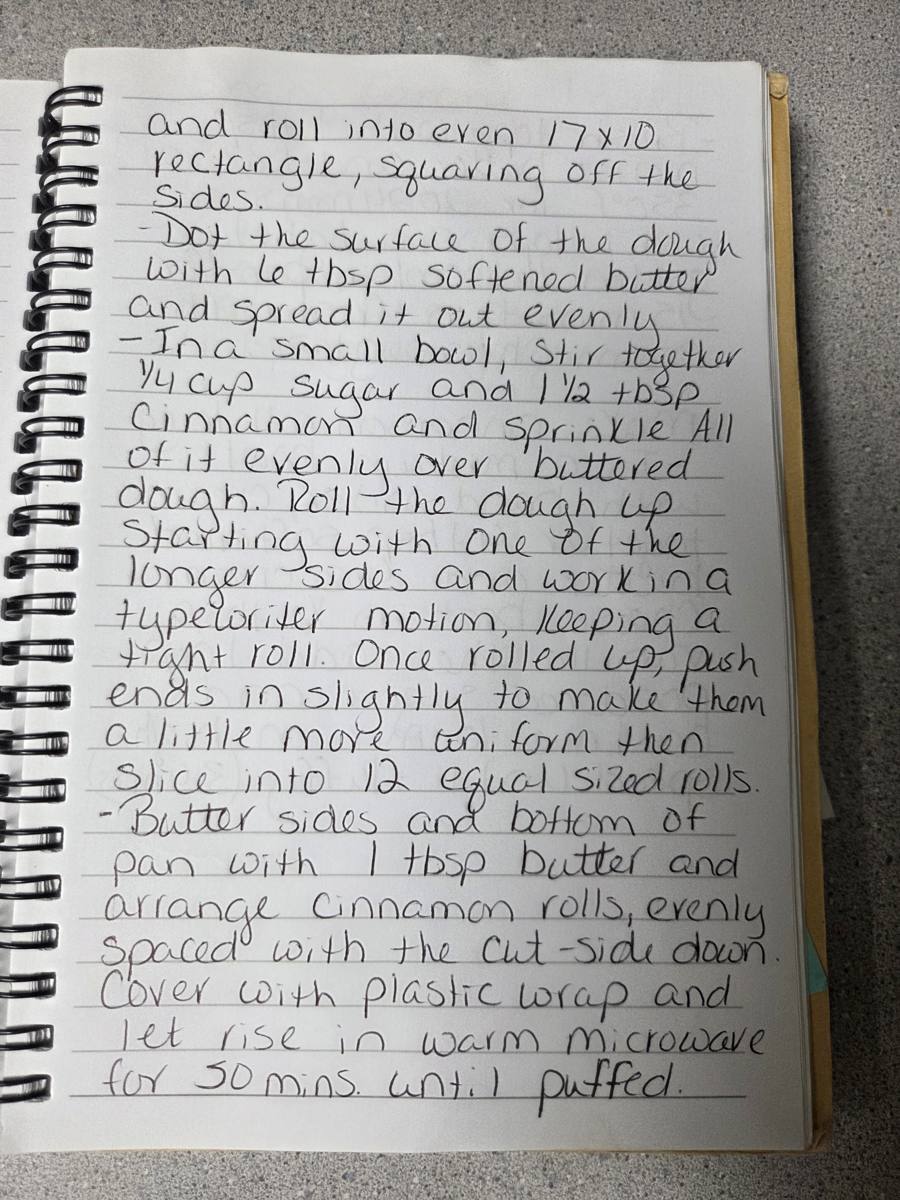 and roll into even 17x10
rectangle, squaring off the
sides.
- Dot the surface of the dough
with 6 tbsp softened butter
and spread it out evenly
- In a small bowl, stir together
1/4 cup sugar and 1 1/2 tbsp
Cinnamon and sprinkle All
of it evenly over buttered
dough. Roll the dough up
Starting with one of the
longer sides and work in a
typewriter motion, keeping a
tight roll. Once rolled up, push
ends in slightly to make them
a little more uniform then
Slice into 12 equal sized rolls.
- Butter sides and bottom of
pan with 1 tbsp butter and
arrange cinnamon rolls, evenly
spaced with the cut-side down.
Cover with plastic wrap and
let rise in warm microwave
for 50 mins. until puffed.